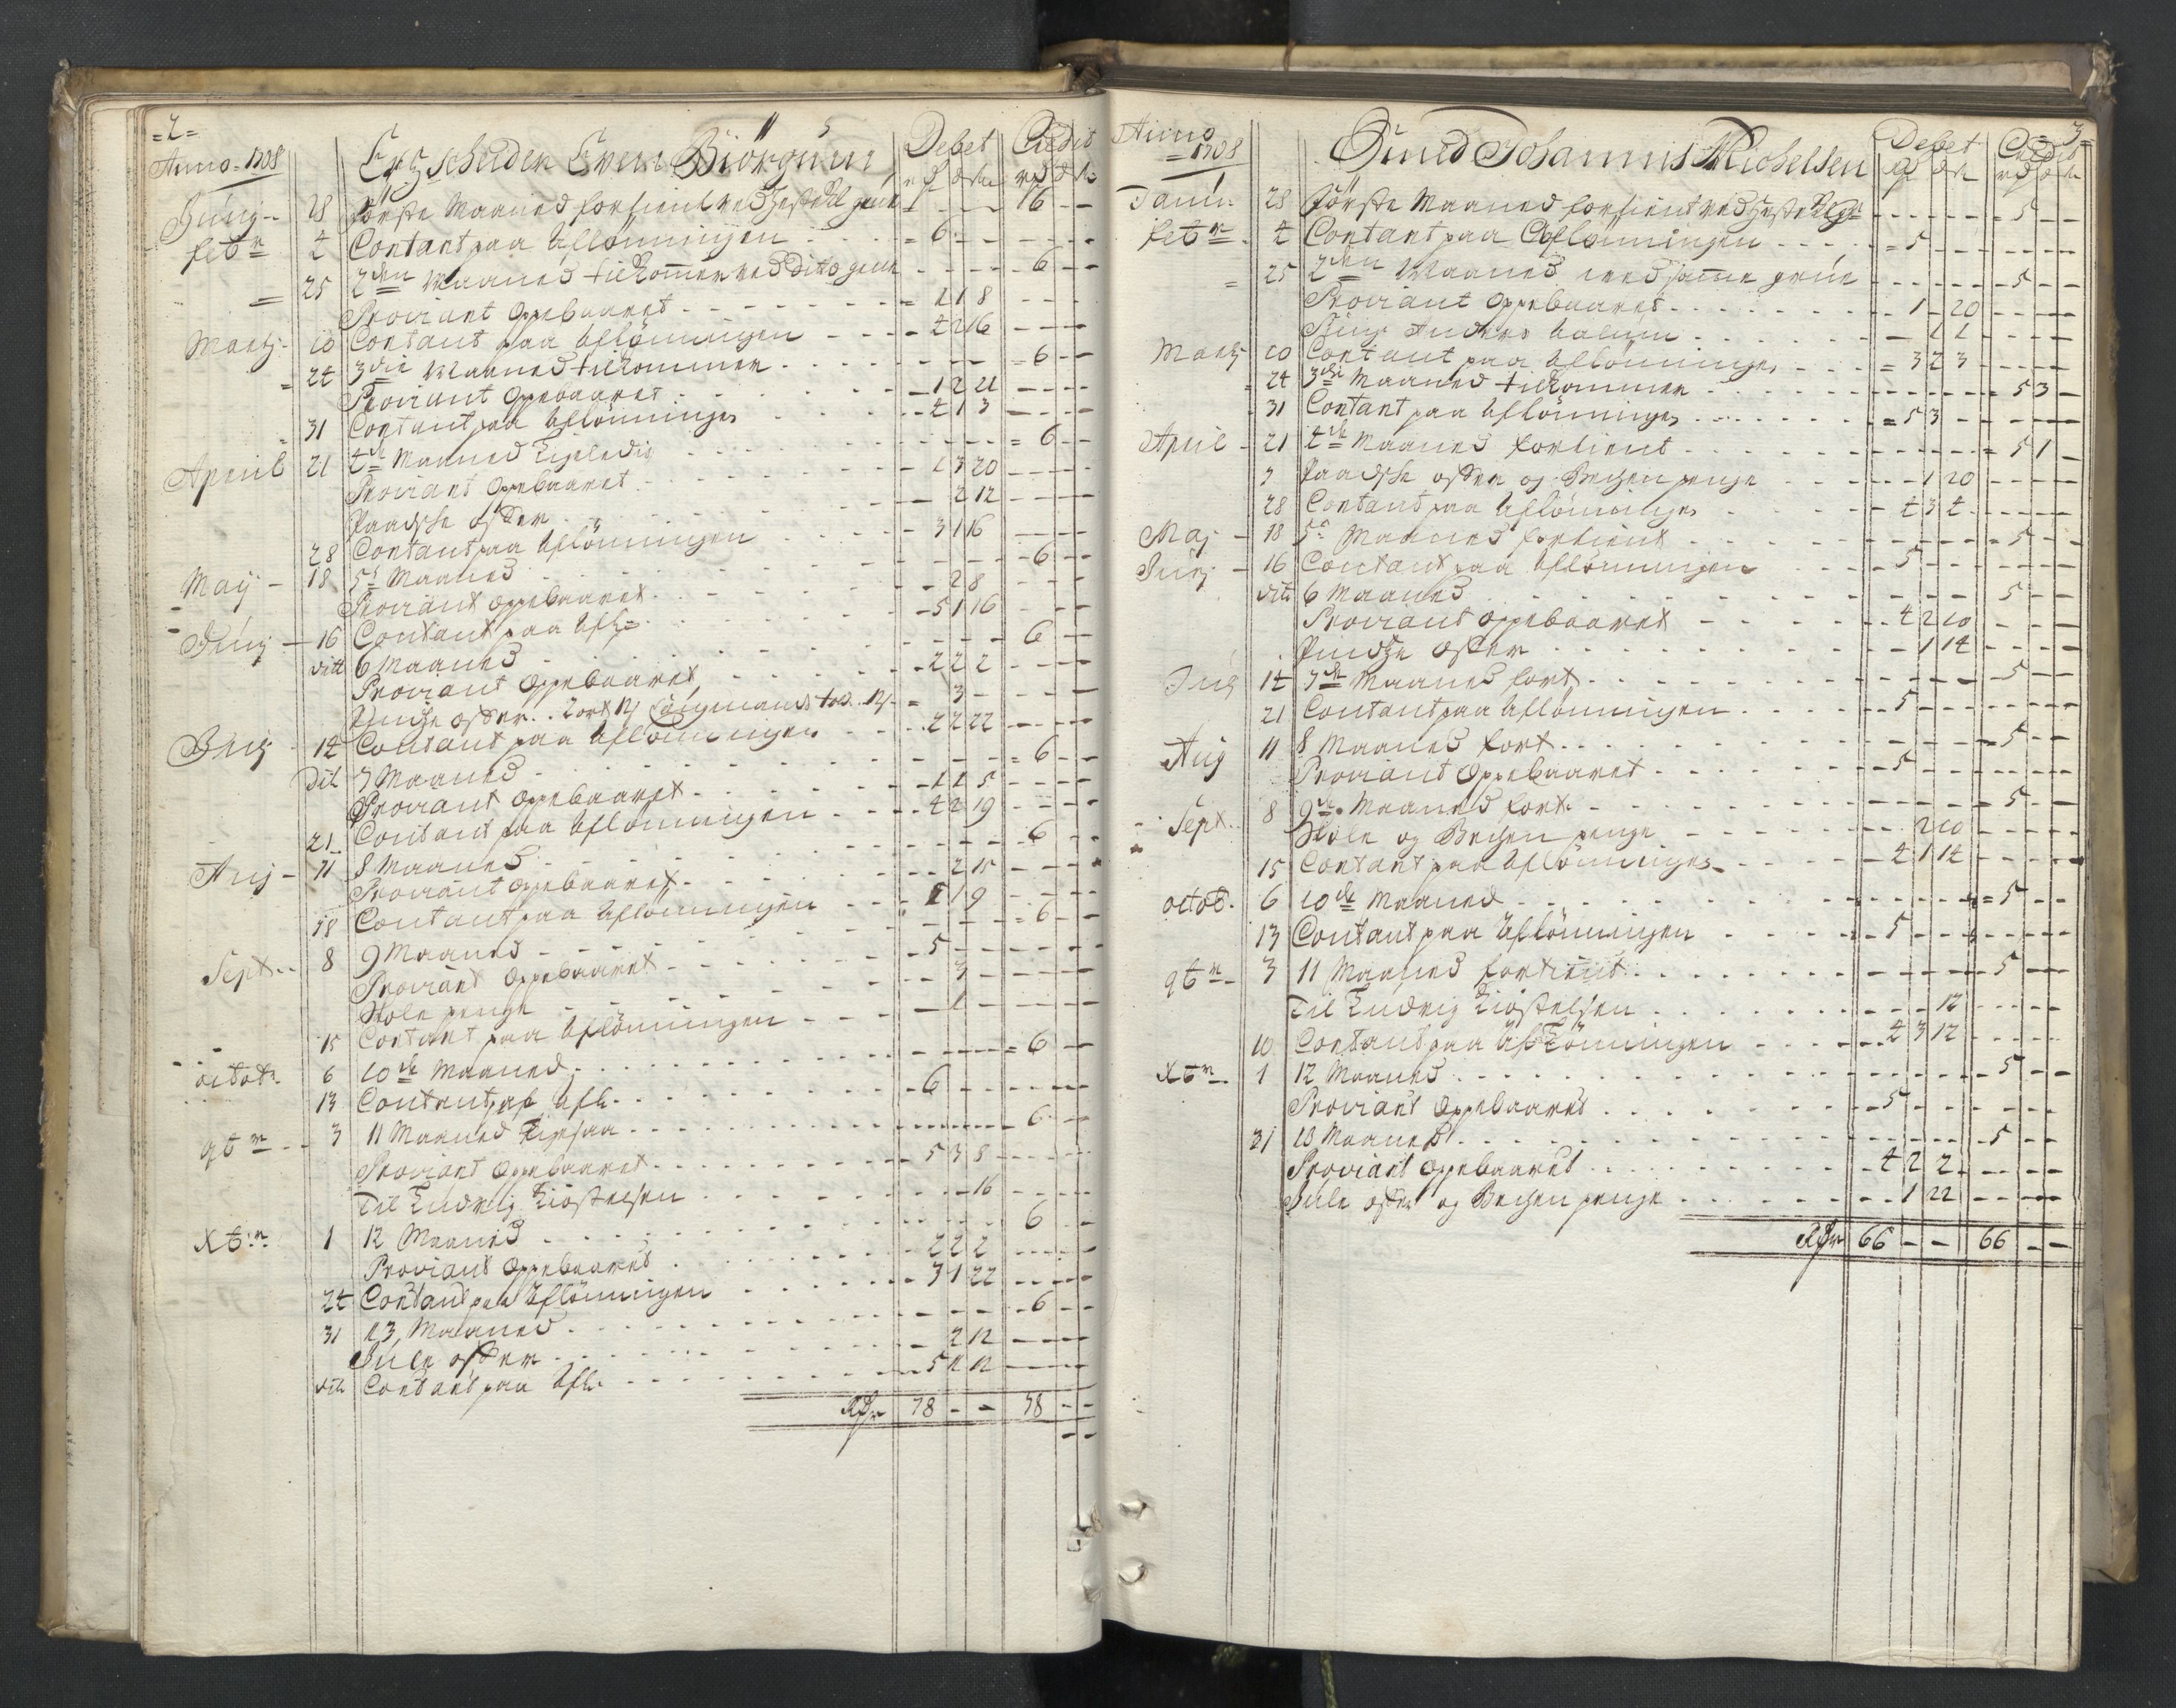 =2=
Anno 1708 Ertz scheider Even Biörnsen Debet Credit
28 Første Maaned fortient ved Hestekl grue 6 - -
febr 4 Contant paa Aflönningen 6 - -
25 2den Maaned tilkommer ved Dito grue 6 - -
Proviant Oppebaaret 1 1 8
Martj 10 Contant paa Aflönningen 4 2 16
24 3die Maaned tilkommer 6 - -
Proviant Oppebaaret 1 2 21
31 Contant paa Aflönningen 4 1 3
April 21 4de Maaned Ligeledis 6 - -
Proviant Oppebaaret 1 3 20
Paaske offer 2 12
28 Contant paa Aflönningen 3 1 16
Maij 18 5te Maaned 6 - -
Proviant oppebaaret 2 8
Junj 16 Contant paa Afl: 5 1 16
ditt 6 Maaned 6 - -
Proviant Oppebaaret 2 2 2
Pintze offer 3
14 Contant paa Aflönningen 2 2 22
Dit 7 Maaned 6 - -
Proviant Oppebaaret 1 1 5
21 Contant paa Aflönningen 4 2 19
Aug 11 8 Maaned 6 - -
Proviant oppebaaret 2 15
18 Contant paa Aflönningen 5 1 9
Sept 8 9 Maaned 6 - -
Proviant Oppebaaret 5 - -
Skole penge 3 -
15 Contant paa Aflönningen 1 -
octob. 6 10de Maaned 6 - -
13 Contant paa Afl. 6 - -
9br 3 11 Maaned Ligesaa 6 - -
Proviant Oppebaaret 5 3 8
Til Ludvig Kiöstelsen 16
Xbr 1 12 Maaned 6 - -
Proviant Oppebaaret 2 2 2
24 Contant paa Aflönningen 3 1 22
31 13 Maaned 6 - -
Jule offer 2 12
dito Contant paa Afl. 5 1 12
Rdr 78 - - 78 - -
3
Anno 1708 Svend Johannis Michelsen Debet Credit
Janu 28 Förste Maaned fortient ved Hestekl Gr 5 - -
febr 4 Contant paa Aflönningen 5 - -
25 2den Maaned ved samme grue 5 - -
Proviant Oppebaaret 1 20
Martj 10 Contant paa Aflönningen 3 2 3
24 3die Maaned tilkommer 5 3 -
31 Contant paa Aflönningen 5 3 -
April 21 4de Maaned fortient 5 1 -
7 Paaske offer og Bechen penge 1 20
28 Contant paa Aflönningen 4 3 4
Maj 18 5te Maaned fortient 5 - -
Junj 16 Contant paa Aflönningen 5 - -
dito 6 Maaned 5 - -
Proviant oppebaaret 4 2 10
Pintze Offer 1 14
14 7de Maaned fort 5 - -
21 Contant paa Aflönningen 5 - -
Aug 11 8 Maaned fort 5 - -
Proviant Oppebaaret 5 - -
Sept. 8 9de Maaned fort 5 - -
Skole og Bechen penge 2 10
15 Contant paa Aflönningen 4 1 14
octob. 6 10de Maaned 5 - -
13 Contant paa Aflönningen 5 - -
9br 3 11 Maaned fortient 5 - -
Til Ludvig Kiöstelsen 12
10 Contant paa Aflönningen 4 3 12
Xbr 1 12 Maaned 5 - -
Proviant Oppebaaret 5 - -
31 13 Maaned 5 - -
Proviant Oppebaaret 4 2 2
Jule offer og Bechen penge 1 22
Rdr 66 - - 66 - -